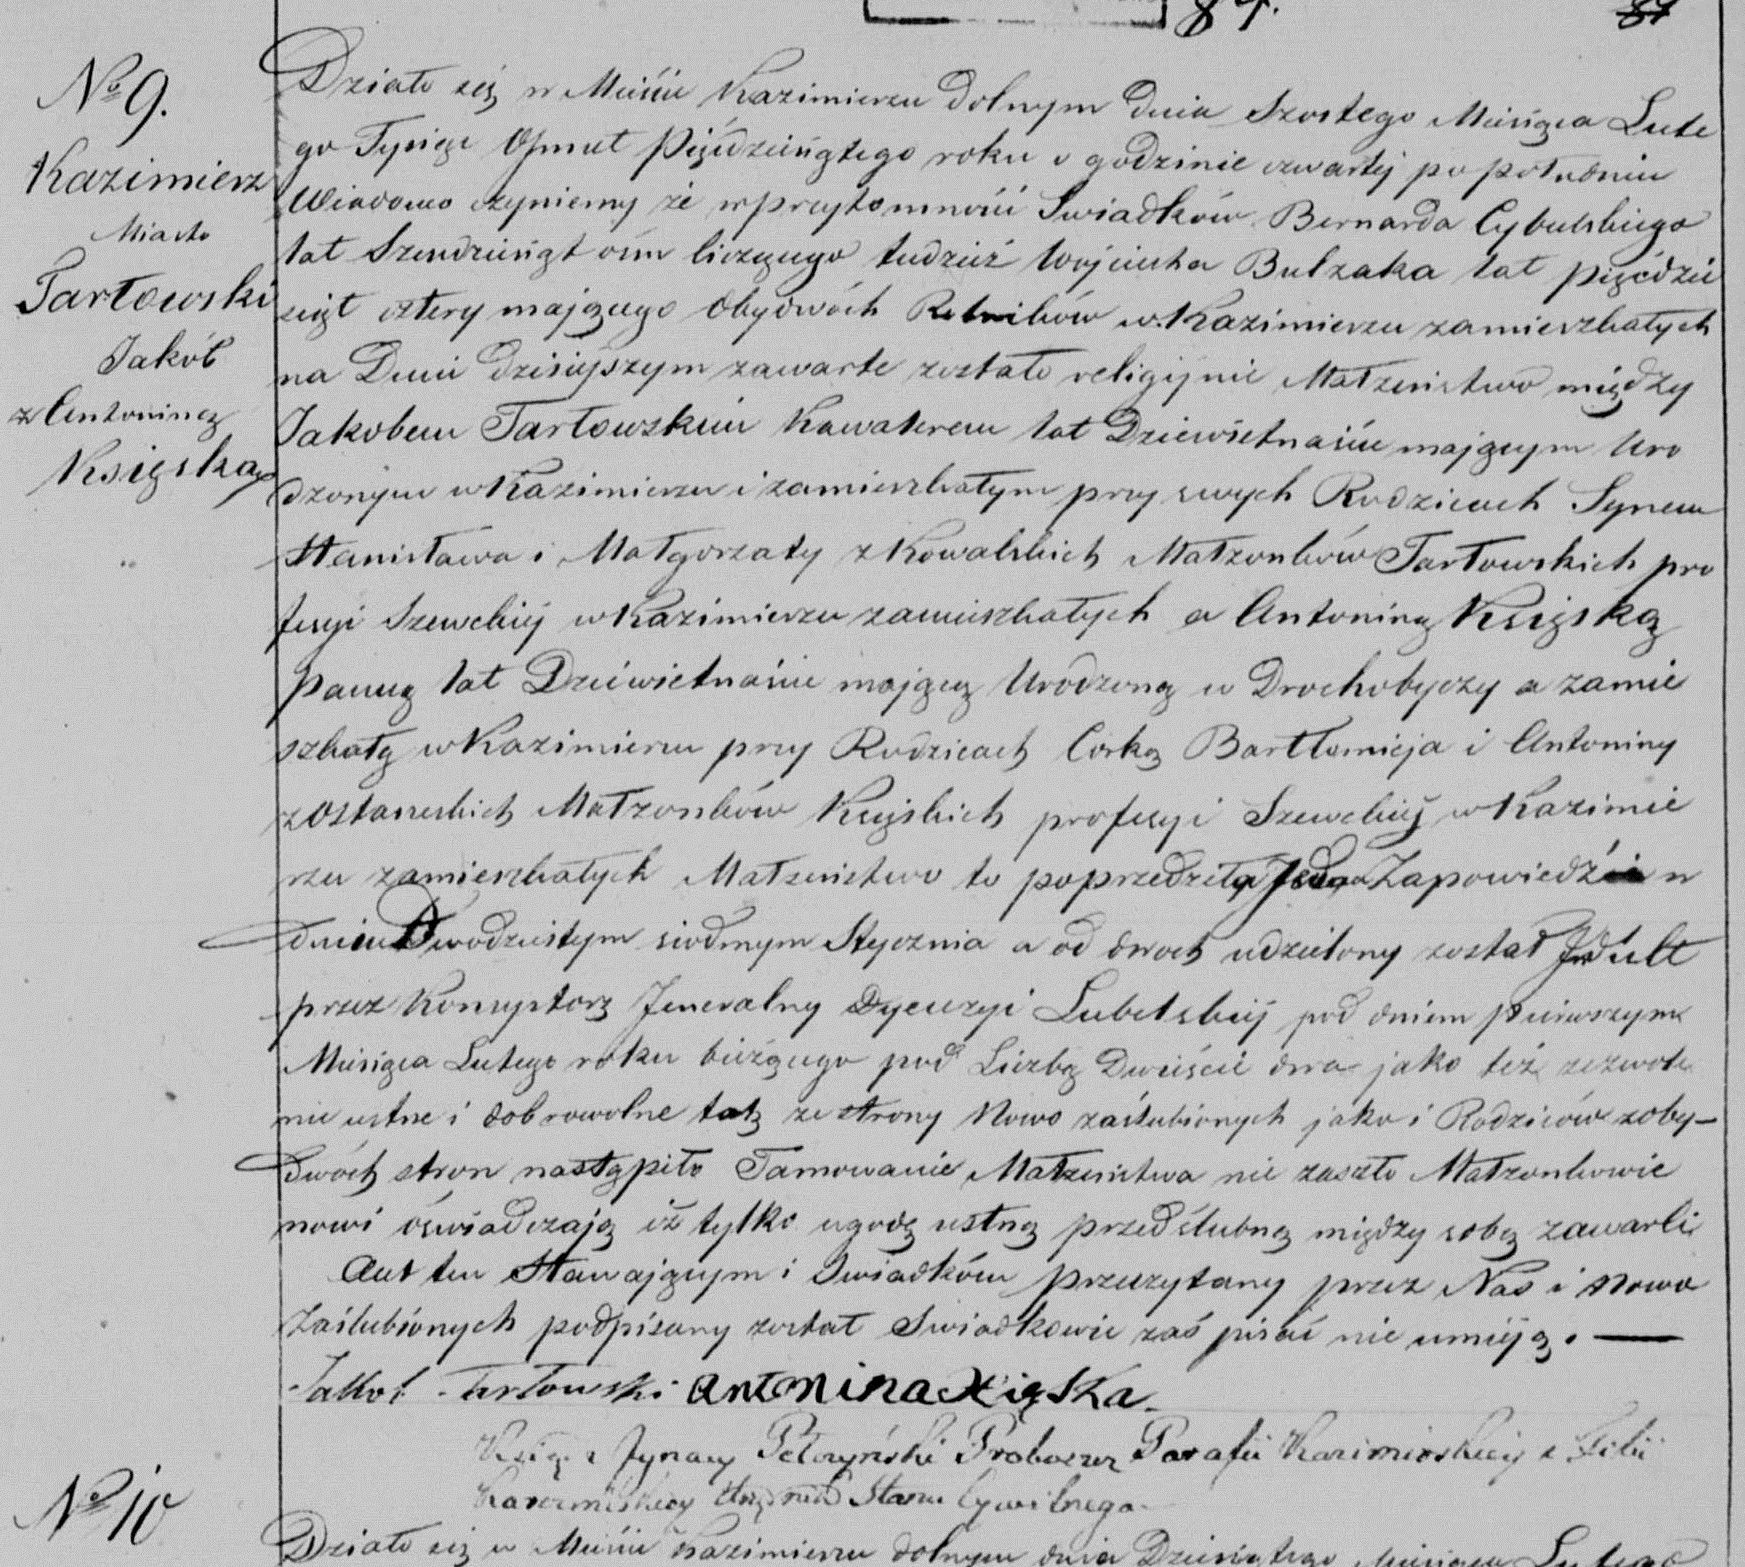 84.
84
No 9.
Kazimierz
Miasto
Tarłowski
Jakób
z Antoniną
Księską
Działo się w Mieście Kazimierzu dolnym dnia Szostego Miesiąca Lute
go Tysiąc Osmset Pięćdziesiątego roku o godzinie czwartej po południu
Wiadomo czyniemy że w przytomności Swiadków Bernarda Cybulskiego
lat Szesdziesiąt ośm liczącego tudzież Wojciecha Bulzaka lat pięćdzie
siąt cztery mającego Obydwóch Rolników w Kazimierzu zamieszkałych
na Dniu dzisiejszym zawarte zostało religijnie Małżeństwo między
Jakobem Tarłowskim Kawalerem lat Dziewietnaście mającym Uro
dzonym w Kazimierzu i zamieszkałym przy swych Rodzicach Synem
Stanisława i Małgorzaty z Kowalskich Małżonków Tarłowskich pro
fesyi Szewckiej w Kazimierzu zamieszkałych a Antoniną Księską
Panną lat Dziewietnaście mającą Urodzoną w Drochobyczy a zamie
szkałą w Kazimierzu przy Rodzicach Corką Bartłomieja i Antoniny
z Ostaneskich Małżonków Księskich profesyi Szewckiej w Kazimie
rzu zamieszkałych Małżeństwo to poprzedziła Jedna Zapowiedź w
dniu Dwudziestym siodmym Stycznia a od dwoch udzielony został Jndult
przez Konsystorz Jeneralny Dyecezyi Lubelskiej pod dniem pierwszym
Miesiąca Lutego roku bieżącego pod Liczbą Dwieście dwa jako też zezwole
nie ustne i dobrowolne tak ze strony Nowo zaślubionych jako i Rodziców z oby–
dwóch stron nastąpiło Tamowanie Małżeństwa nie zaszło Małżonkowie
nowi óswiadczają iż tylko ugodę ustną przedślubną między sobą zawarli
Akt ten Stawającym i Swiadkóm przeczytany przez Nas i nowo
Zaślubionych podpisany został Swiadkowie zaś pisać nie umieją. —
Jakob Tarłowski Antonina Xięska
Ksiądz Jgnacy Pełczyński Proboszcz Parafii Kazimirskiej i Filii
Kazimirskiey Urzędnik Stanu Cywilnego
No 10
Działo się w Mieście Kazimierzu dolnym dnia Dziesiątego Miesiąca Lutego